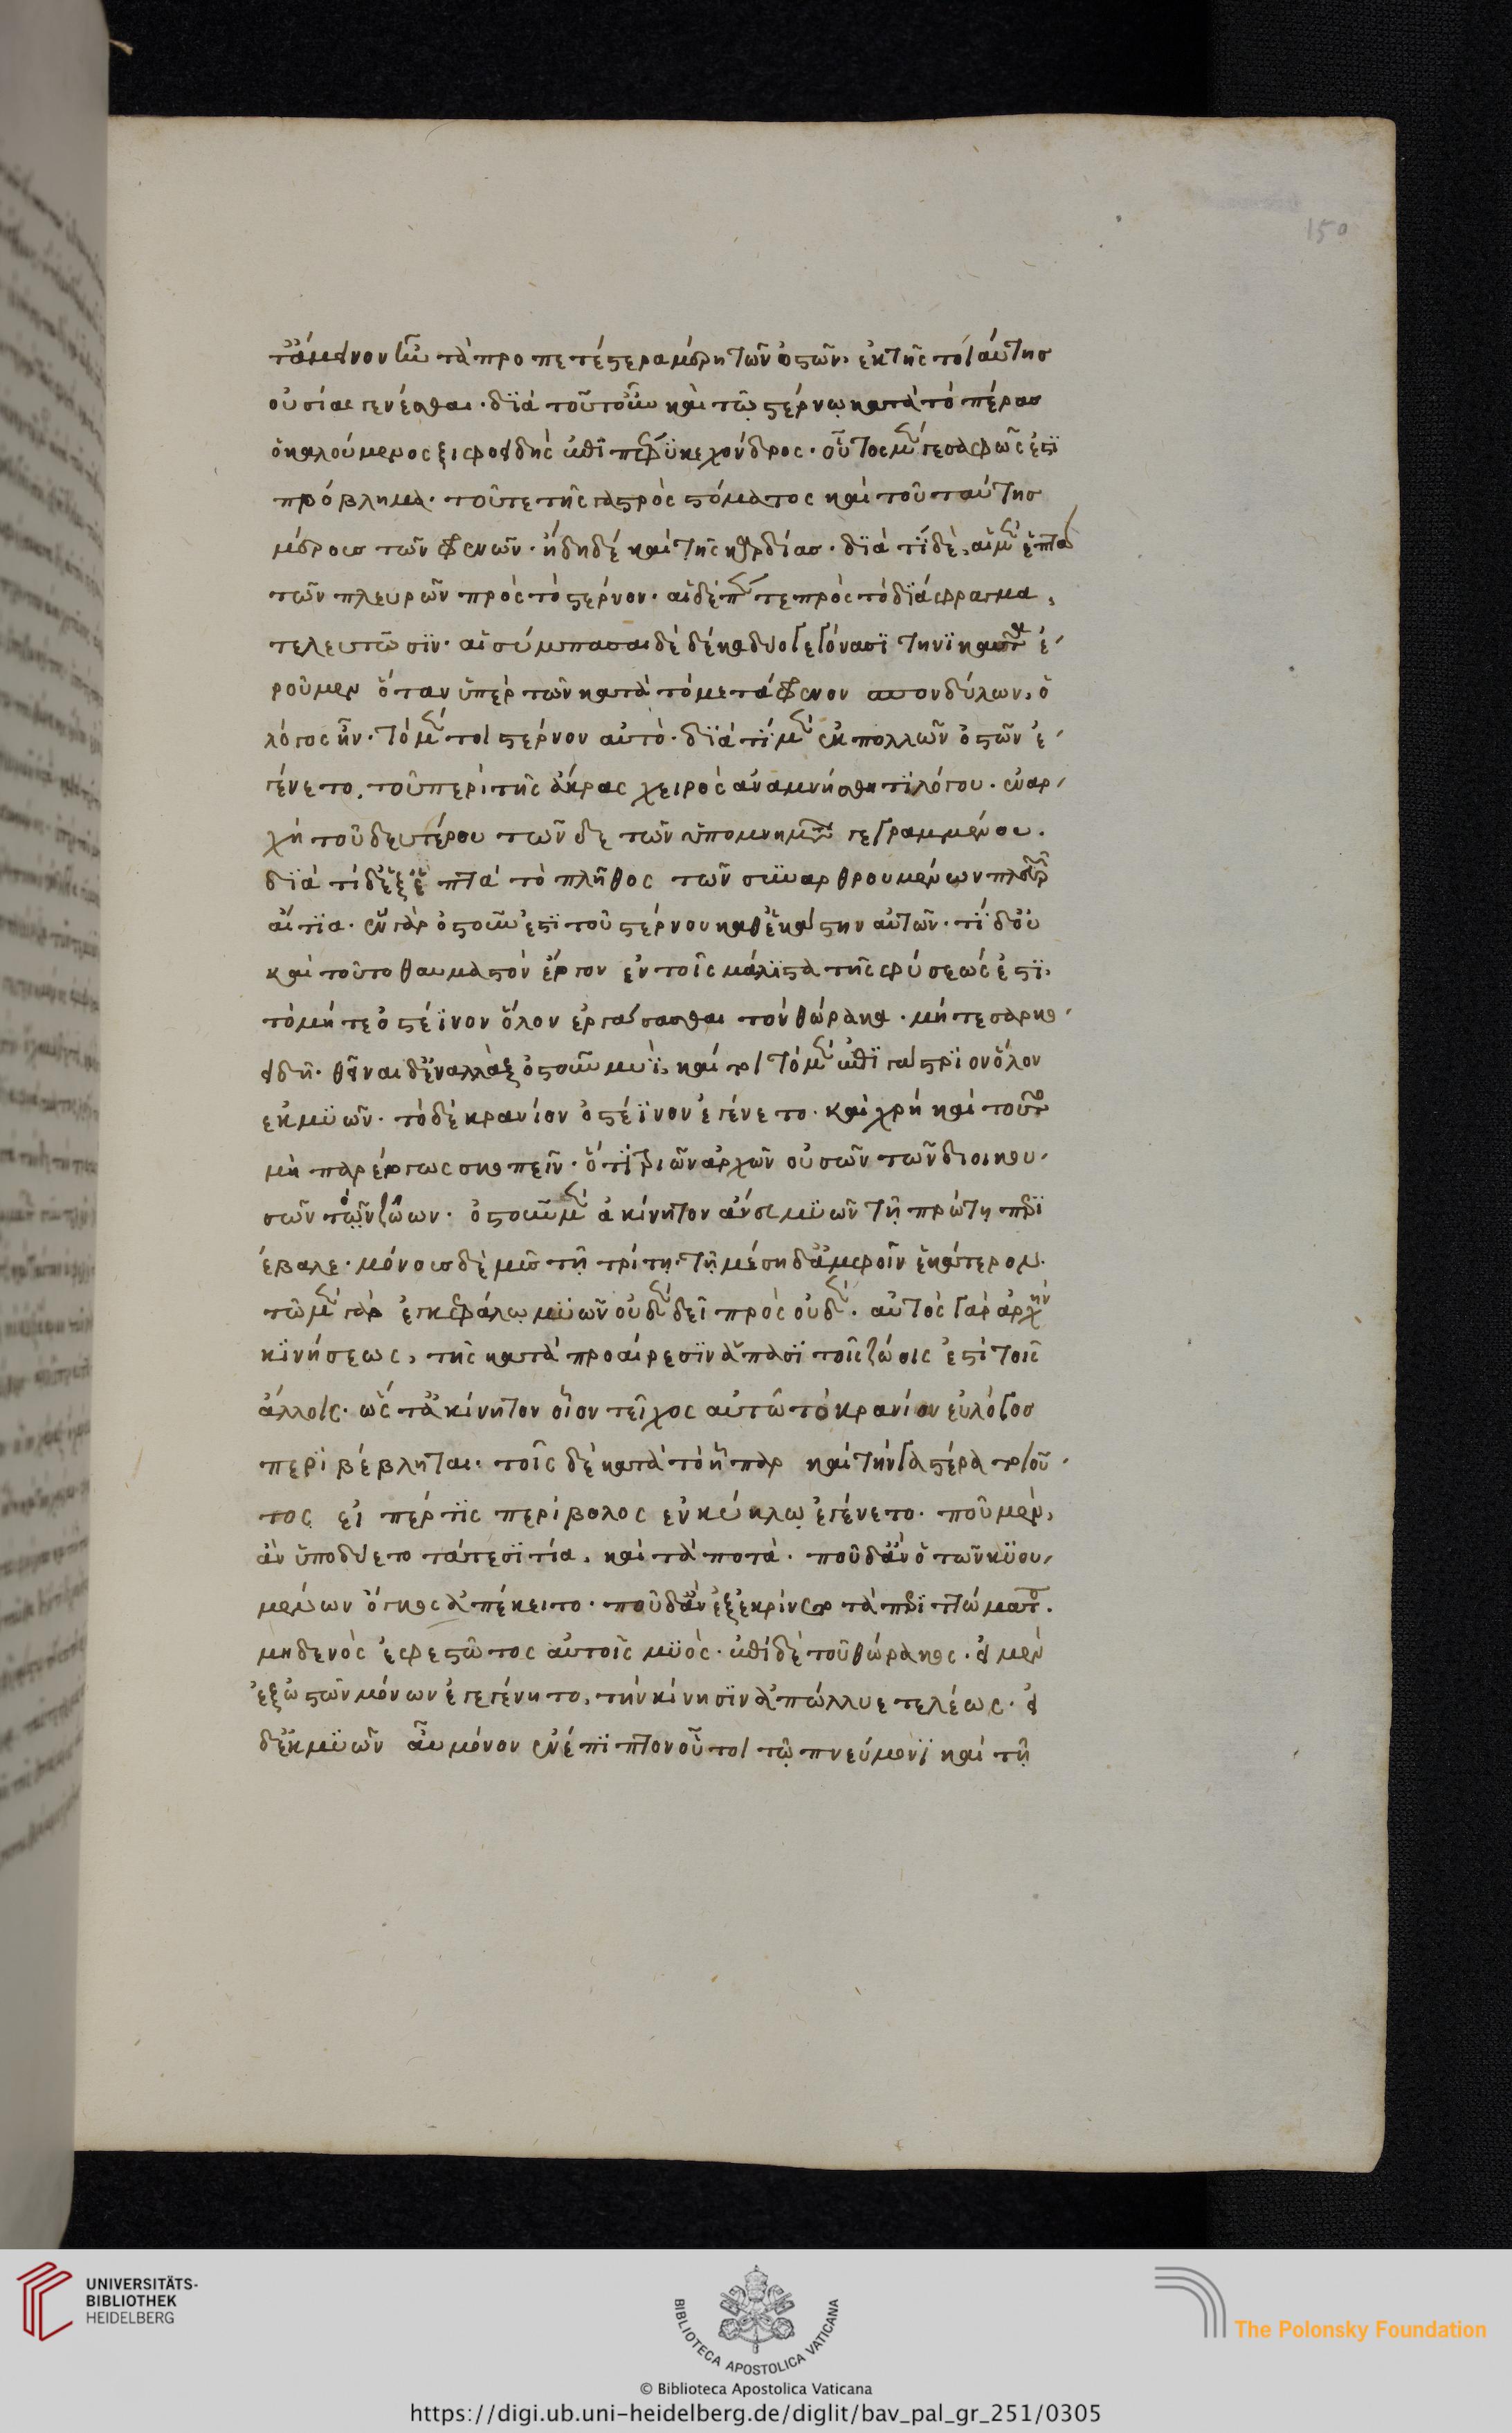 150
τἄμεινον ἦν τὰ προπετέστερα μέρη τῶν ὀστῶν. ἐκ τῆς τοιαύτης
οὐσίας γενέσθαι. διὰ τοῦτ' οὖν καὶ τῷ στέρνῳ κατὰ τὸ πέρας
ὁ καλούμενος ξιφοειδὴς ἐπιπέφυκε χόνδρος. οὗτος μέν γε σαφῶς ἐστι
πρόβλημα. τοῦ τε τῆς γαστρὸς στόματος καὶ τοῦ ταύτης
μέρους τῶν φρενῶν. ἤδη δὲ καὶ τῆς καρδίας. διὰ τί δὲ, αἱ μὲν ἑπτὰ
τῶν πλευρῶν πρὸς τὸ στέρνον. αἱ δὲ πέντε πρὸς τὸ διάφραγμα,
τελευτῶσιν. αἱ σύμπασαι δὲ δέκα δύο γεγόνασι τηνικαῦτα ἐ-
ροῦμεν ὅταν ὑπὲρ τῶν κατὰ τὸ μετάφρενον σπονδύλων, ὁ
λόγος ᾖν. τὸ μέν τοι στέρνον αὐτὸ. διὰ τί μὲν ἐκ πολλῶν ὀστῶν ἐ-
γένετο, τοῦ περὶ τῆς ἄκρας χειρὸς ἀναμνήσθητι λόγου. ἐν ἀρ-
χῇ τοῦ δευτέρου τῶν δε τῶν ὑπομνημάτων γεγραμμένου.
διὰ τί δ' ἐξ ἑπτὰ τὸ πλῆθος τῶν συναρθρουμένων πλευρῶν
αἰτία. ἓν γὰρ ὀστοῦν ἐστι τοῦ στέρνου καθ' ἑκάστην αὐτῶν. τί δ' οὐ
καὶ τοῦτο θαυμαστὸν ἔργον ἐν τοῖς μάλιστα τῆς φύσεώς ἐστι.
τὸ μήτε ὀστέινον ὅλον ἐργάσασθαι τὸν θώρακα. μήτε σαρκο-
ειδῆ. θεῖναι δ' ἐναλλὰξ ὀστοῦν μυῒ, καί τοι τὸ μὲν ἐπιγάστριον ὅλον
ἐκ μυῶν. τὸ δὲ κρανίον ὀστέινον ἐγένετο. καὶ χρὴ καὶ τοῦτο
μὴ παρέργως σκοπεῖν. ὅτι τριῶν ἀρχῶν οὐσῶν τῶν διοικου-
σῶν τὸ ζῷων. ὀστοῦν μὲν ἀκίνητον ἄνευ μυῶν τῇ πρώτῃ περι
έβαλε. μόνους δὲ μῦς τῇ τρίτῃ. τῇ μέσῃ δ' ἀμφοῖν ἑκάτερον.
τῷ μὲν γὰρ ἐγκεφάλῳ μυῶν οὐδὲν δεῖ πρὸς οὐδὲν. αὐτὸς γὰρ ἀρχὴν
κινήσεως, τῆς κατὰ προαίρεσιν ἅπασι τοῖς ζώοις ἐστὶ τοῖς
ἄλλοις. ὥστ' ἀκίνητον οἷον τεῖχος αὐτῷ τὸ κρανίον εὐλόγως
περιβέβληται. τοῖς δὲ κατὰ τὸ ἧπαρ καὶ τὴν γαστέρα τοιοῦ-
τος εἴπερ τις περίβολος ἐν κύκλῳ ἐγένετο. ποῦ μὲν,
ἂν ὑποδύετο τά τε σιτία, καὶ τὰ ποτά. ποῦ δ' ἂν ὁ τῶν κυου-
μένων ὄγκος ἀπέκειτο. ποῦ δ' ἂν ἐξεκρίνετο τὰ περιττώματα.
μηδενὸς ἐφεστῶτος αὐτοῖς μυός. ἐπὶ δὲ τοῦ θώρακος. εἰ μὲν
ἐξ ὀστῶν μόνων ἐγεγένητο, τὴν κίνησιν ἀπώλλυε τελέως. εἰ
δ' ἐκ μυῶν αὖ μόνον ἐνέπιπτον οὗτοι τῷ πνεύμονι καὶ τῇ
UNIVERSITÄTS-
BIBLIOTHEK
HEIDELBERG
BIBLIOTECA APOSTOLICA VATICANA
The Polonsky Foundation
© Biblioteca Apostolica Vaticana
https://digi.ub.uni-heidelberg.de/diglit/bav_pal_gr_251/0305